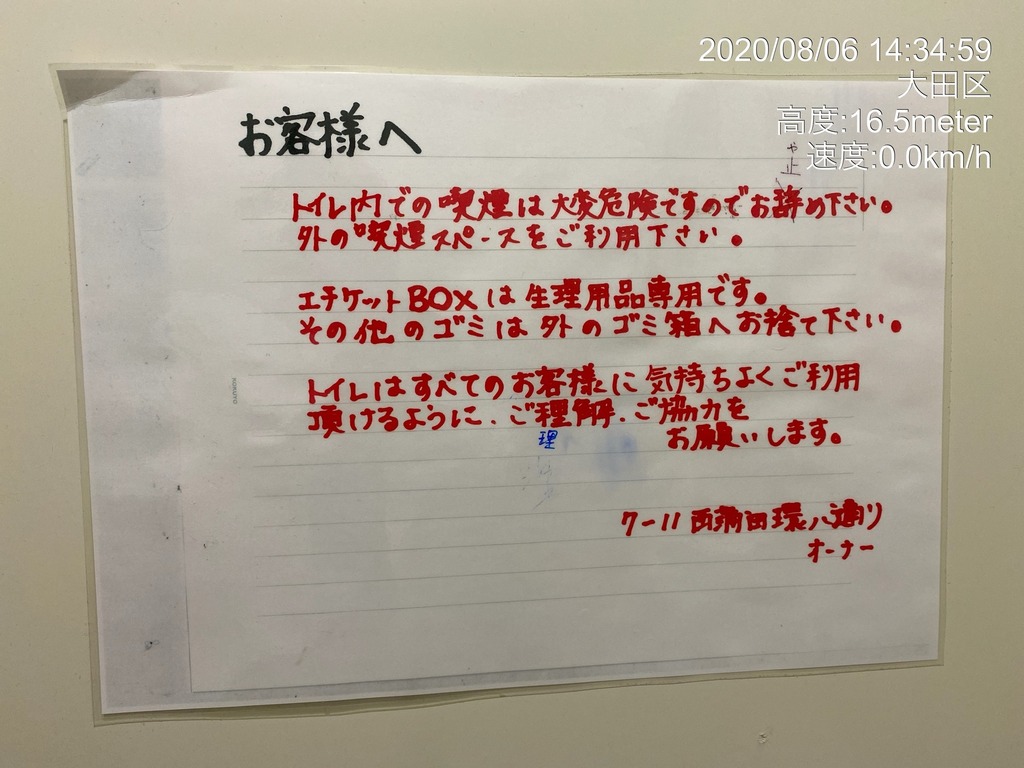 2020/08/06 14:34:59
大田区
高度:16.5meter
速度:0.0km/h
お客様へ
や
止
トイレ内での喫煙は大変危険ですのでお辞め下さい。
外の喫煙スペースをご利用下さい。
エチケットBOXは生理用品専用です。
その他のゴミは外のゴミ箱へお捨て下さい。
トイレはすべてのお客様に気持ちよくご利用
頂けるように、ご理解、ご協力を
理
お願いします。
7-11 西蒲田環八通り
オーナー
KOKUYO